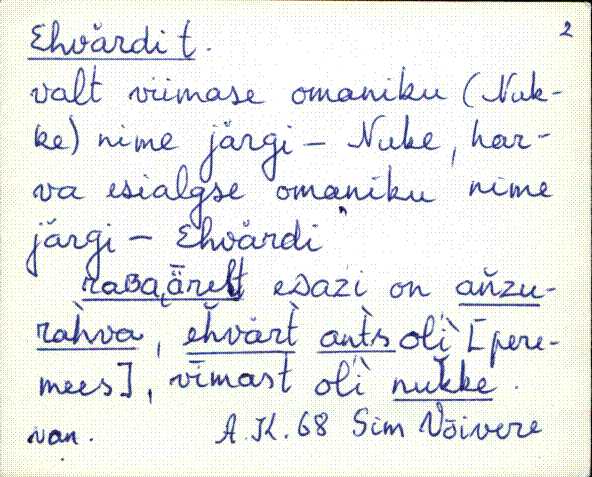 Ehvärdi t. 2
valt viimase omaniku (Nuk-
ke) nime järgi – Nuke, har-
va esialgse omaniku nime
järgi – Ehvärdi
on ańzu-
ràhva, ehvärt̀ ant̀s olì [pere-
mees], vīmast olì nuk̆ke.
van. A.K. 68 Sim Võivere